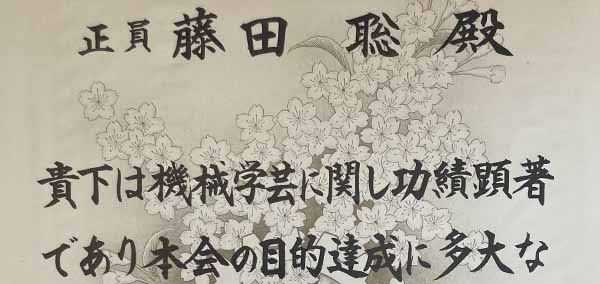 正員 藤田 聡 殿
貴下は機械学芸に関し功績顕著
であり本会の目的達成に多大な